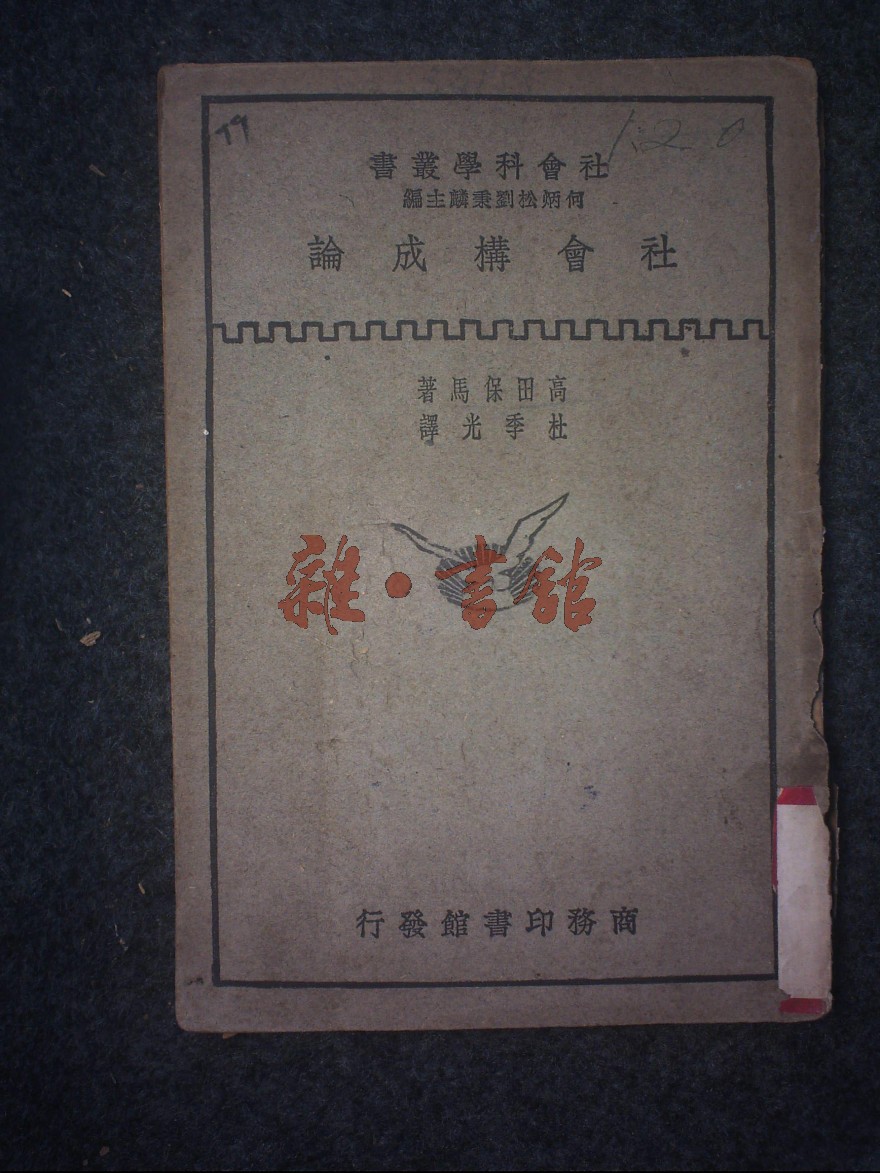 社會科學叢書
何炳松劉秉麟主編
社會構成論
高田保馬著
杜季光譯
雜·書館
商務印書館發行